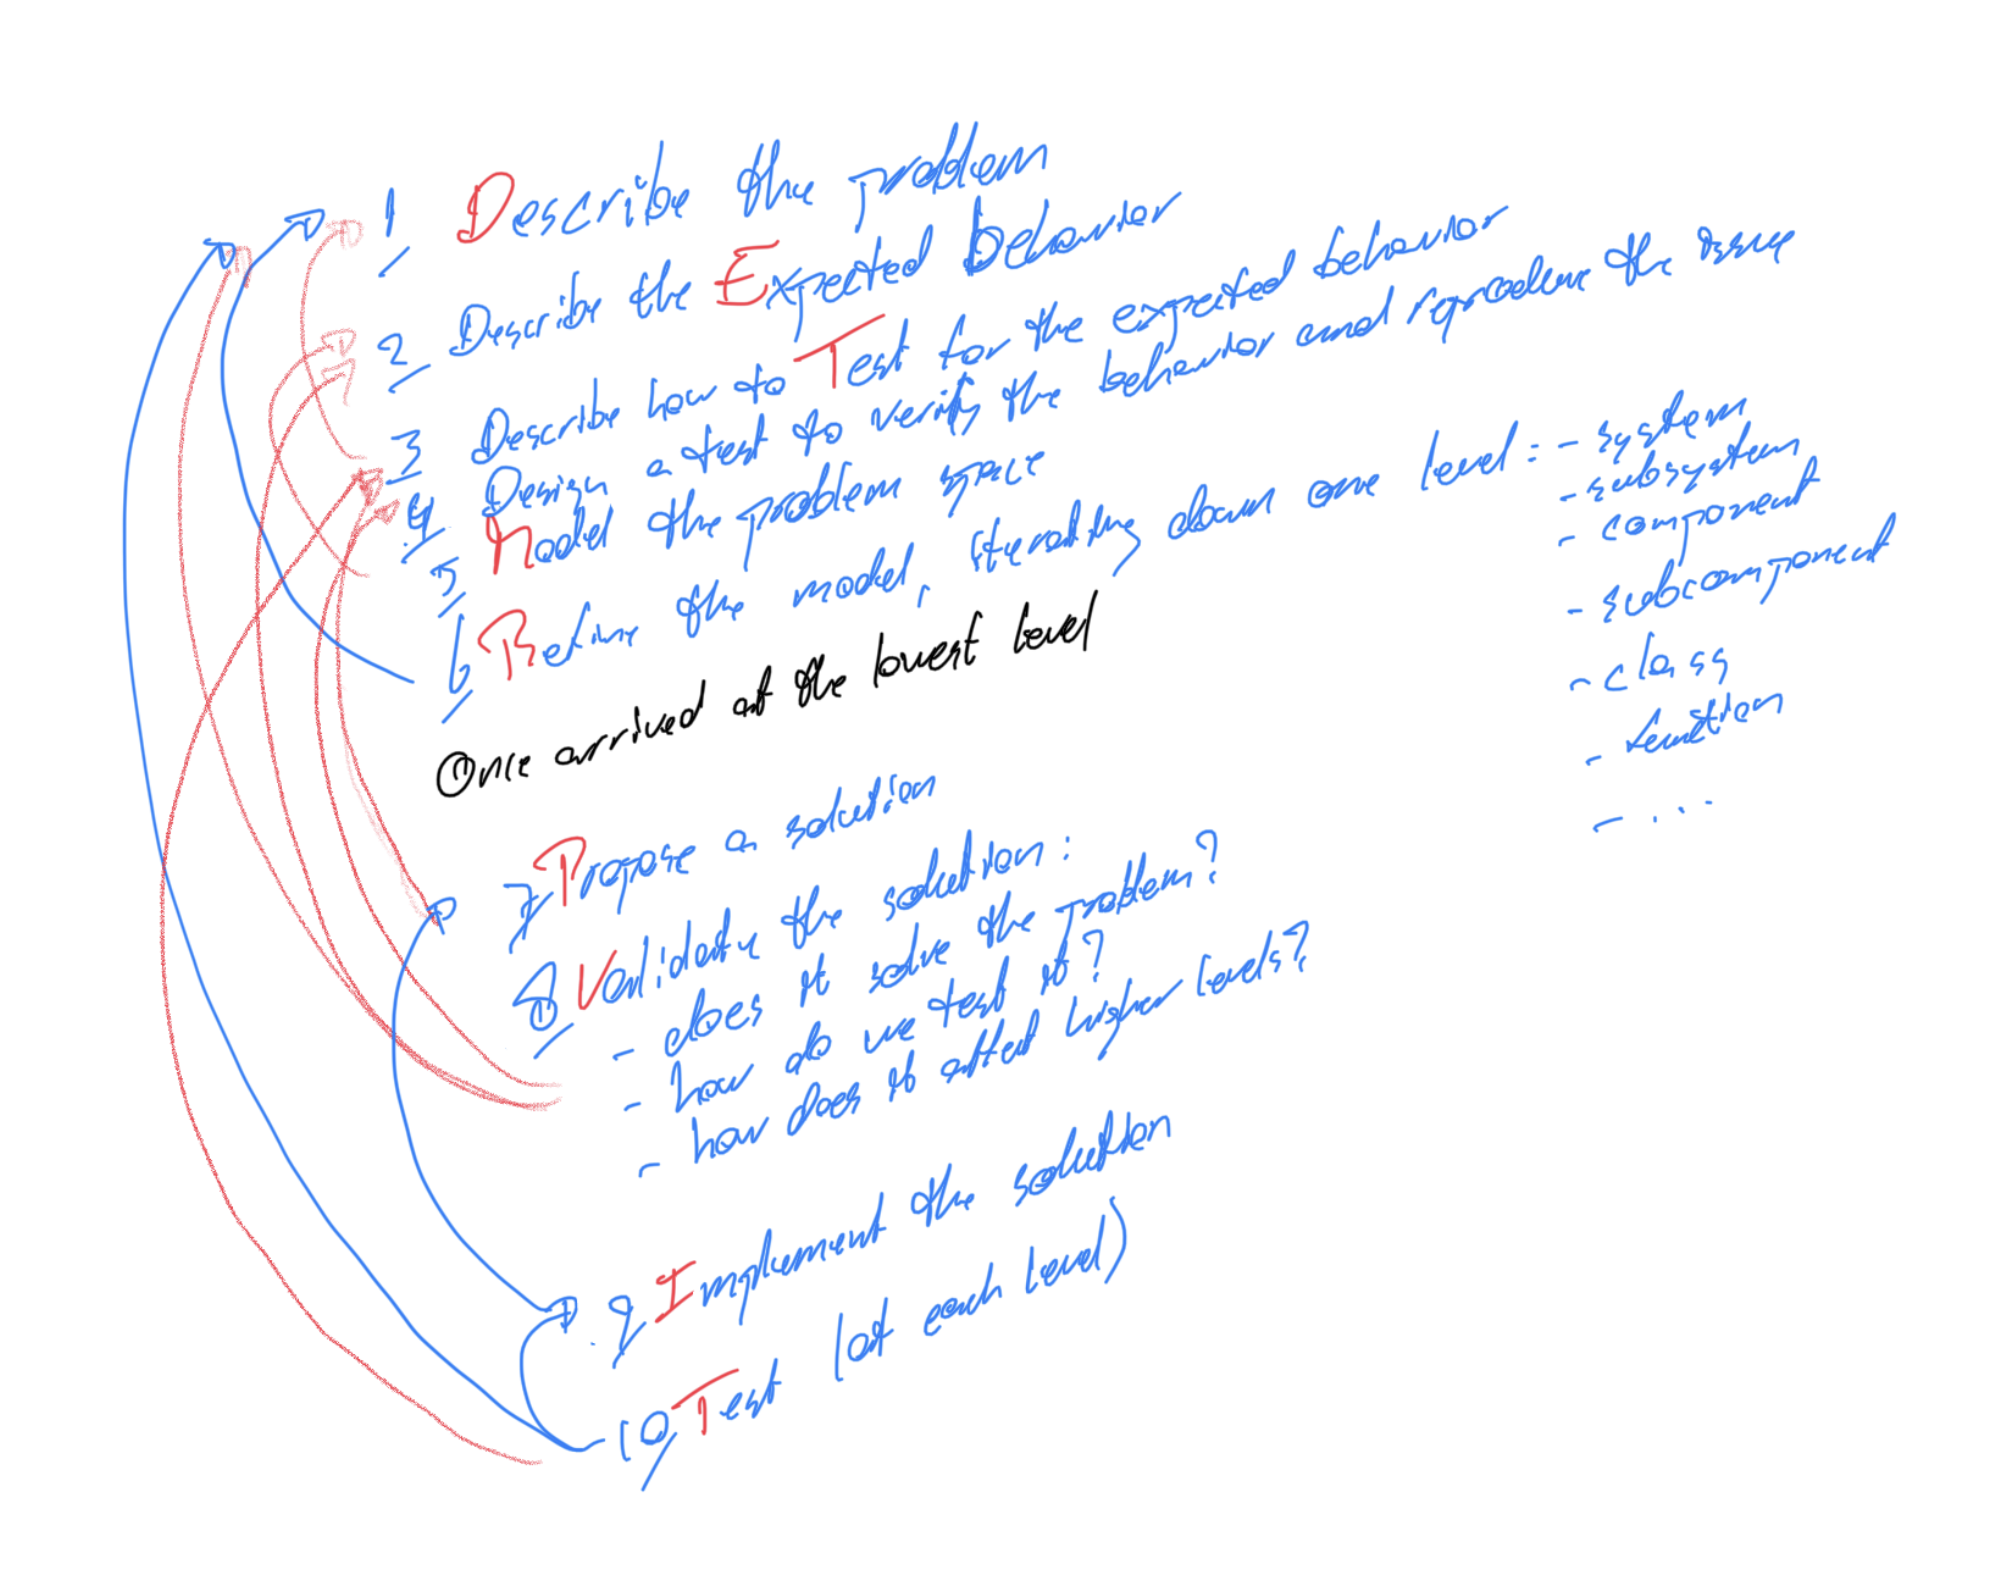 1 Describe the problem
2 Describe the Expected behavior
3 Describe how to Test for the expected behavior
4 Design a test to verify the behavior and reproduce the issue
5 Model the problem space
6 Refine the model, iterating down one level: - system
- subsystem
- component
- subcomponent
- class
- function
- ...
Once arrived at the lowest level
7 Propose a solution
8 Validate the solution:
- does it solve the problem?
- how do we test it?
- how does it affect higher levels?
9 Implement the solution
10 Test (at each level)